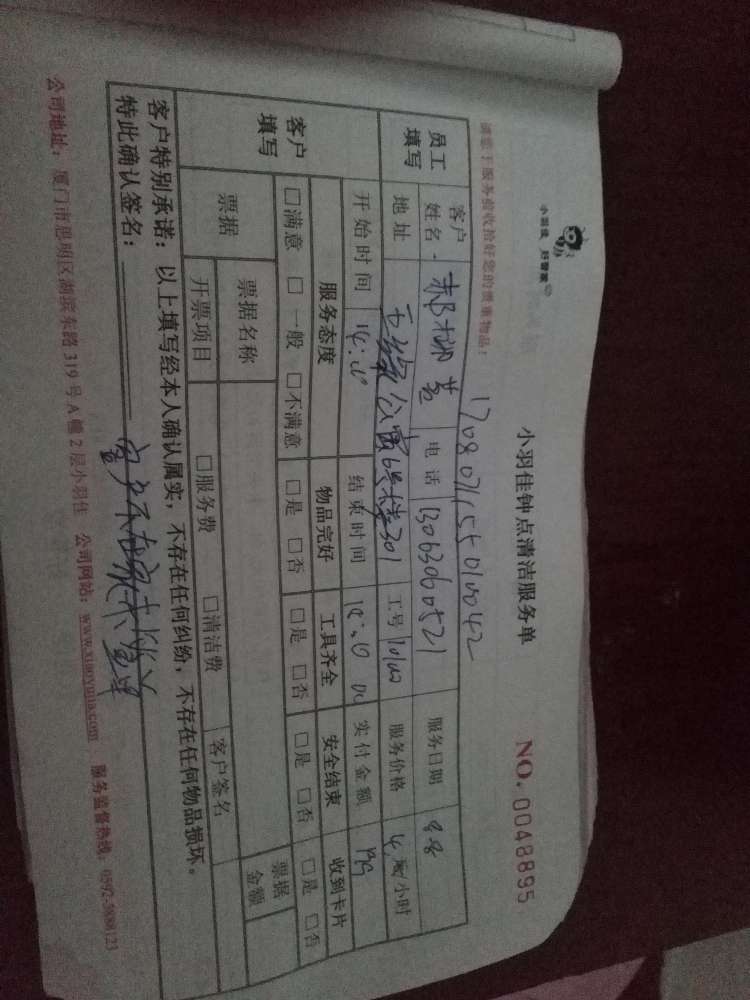 小羽佳 好管家
小羽佳钟点清洁服务单
NO. 0048895
请您于服务前收拾好您的贵重物品!
170807155010042
员工填写 客户姓名 郝柳 电话 13063060521 服务日期 8.8
地址 公寓6号楼301 工号 服务价格 小时
客户填写 开始时间 结束时间 实付金额
服务态度 物品完好 工具齐全 安全结束 收到卡片
□满意 □一般 □不满意 □是 □否 □是 □否 □是 □否 □是 □否
票据 票据名称 票据金额
开票项目 □服务费 □清洁费 客户签名
客户特别承诺:以上填写经本人确认属实,不存在任何纠纷,不存在任何物品损坏。
特此确认签名: 客户不在家
公司地址:厦门市思明区湖滨东路319号A幢2层小羽佳 公司网站:www.xiaoyujia.com 服务监督热线:0592-3808123